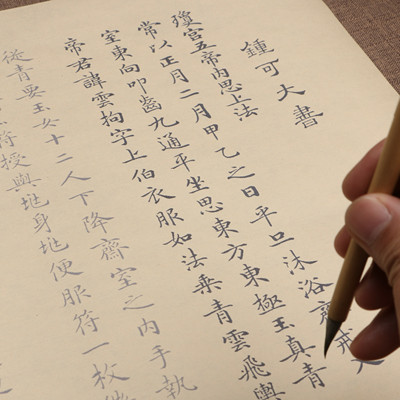 鍾可大書
瓊宮五帝內思上法
常以正月二月甲乙之日平旦沐浴齋戒入
室東向叩齒九通平坐思東方東極玉真青
帝君諱雲拘字上伯衣服如法乘青雲飛輿
從青要玉女十二人下降齋室之內手執
符授與地身地便服符一枚